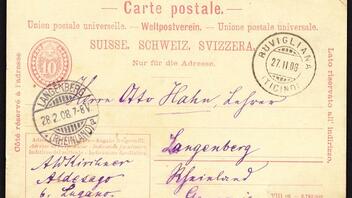 Carte postale.
Union postale universelle. — Weltpostverein. — Unione postale universale.
SUISSE. SCHWEIZ. SVIZZERA.
Nur für die Adresse.
Côté réservé à l'adresse
Lato riservato all'indirizzo.
10
RUVIGLIANA
27.II.08
(TICINO)
LANGENBERG
28.2.08.7-8V
(RHEINLAND) a
Herrn Otto Hahn, Lehrer
Langenberg
Rheinland
A W Kirchner
Aldesago
b. Lugano